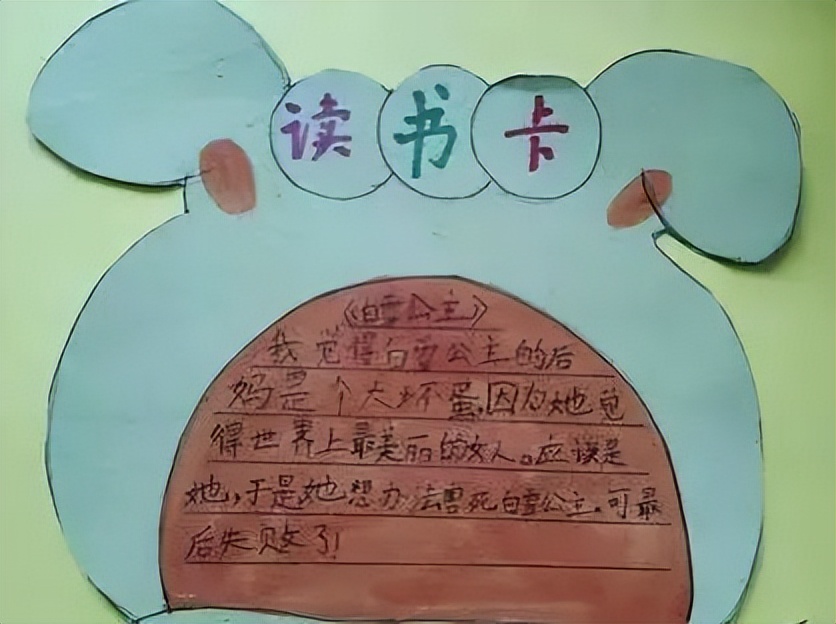 读书卡
《白雪公主》
我觉得白雪公主的后
妈是个大坏蛋,因为她觉
得世界上最美丽的女人。应该是
她,于是她想办法害死白雪公主。可最
后失败了!